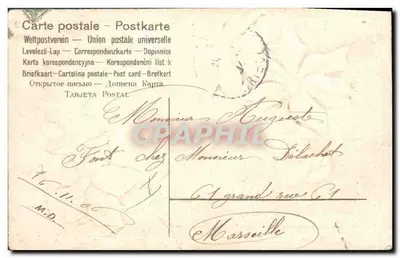 Carte postale - Postkarte
Weltpostverein — Union postale universelle
Levelező-Lap — Correspondenzkarte — Dopisnice
Karta korespondencyjna — Korespondenční list k
Briefkaart - Cartolina postale - Post card - Brefkort
Открытое письмо — Дописна Карта
TARJETA POSTAL
Monsieur Auguste
CPARAMA.COM
chez Monsieur Délachat
61 grand rue 61
16.11.06
M.D.
Marseille